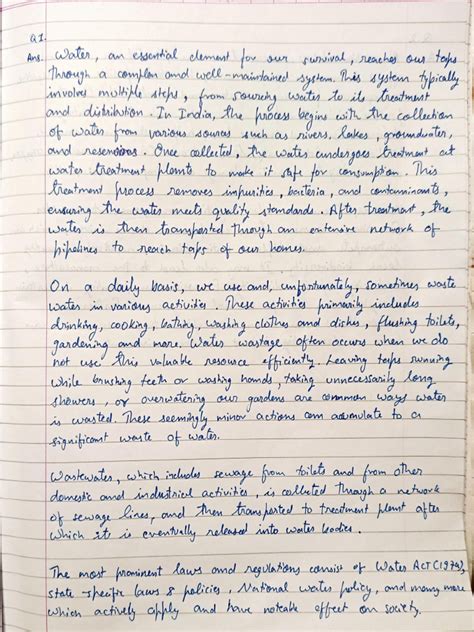 Q1.
Ans. Water, an essential element for our survival, reaches our taps
through a complex and well-maintained system. This system typically
involves multiple steps, from sourcing water to its treatment
and distribution. In India, the process begins with the collection
of water from various sources such as rivers, lakes, groundwater,
and reservoirs. Once collected, the water undergoes treatment at
water treatment plants to make it safe for consumption. This
treatment process removes impurities, bacteria, and contaminants,
ensuring the water meets quality standards. After treatment, the
water is then transported through an extensive network of
pipelines to reach taps of our homes.
On a daily basis, we use and, unfortunately, sometimes waste
water in various activities. These activities primarily includes
drinking, cooking, bathing, washing clothes and dishes, flushing toilets,
gardening and more. Water wastage often occurs when we do
not use this valuable resource efficiently. Leaving taps running
while brushing teeth or washing hands, taking unnecessarily long
showers, or overwatering our gardens are common ways water
is wasted. These seemingly minor actions can accumulate to a
significant waste of water.
Wastewater, which includes sewage from toilets and from other
domestic and industrial activities, is collected through a network
of sewage lines, and then transported to treatment plant after
which it is eventually released into water bodies.
The most prominent laws and regulations consist of Water ACT (1974),
state-specific laws & policies, National water policy, and many more
which actively apply and have noteable effect on society.